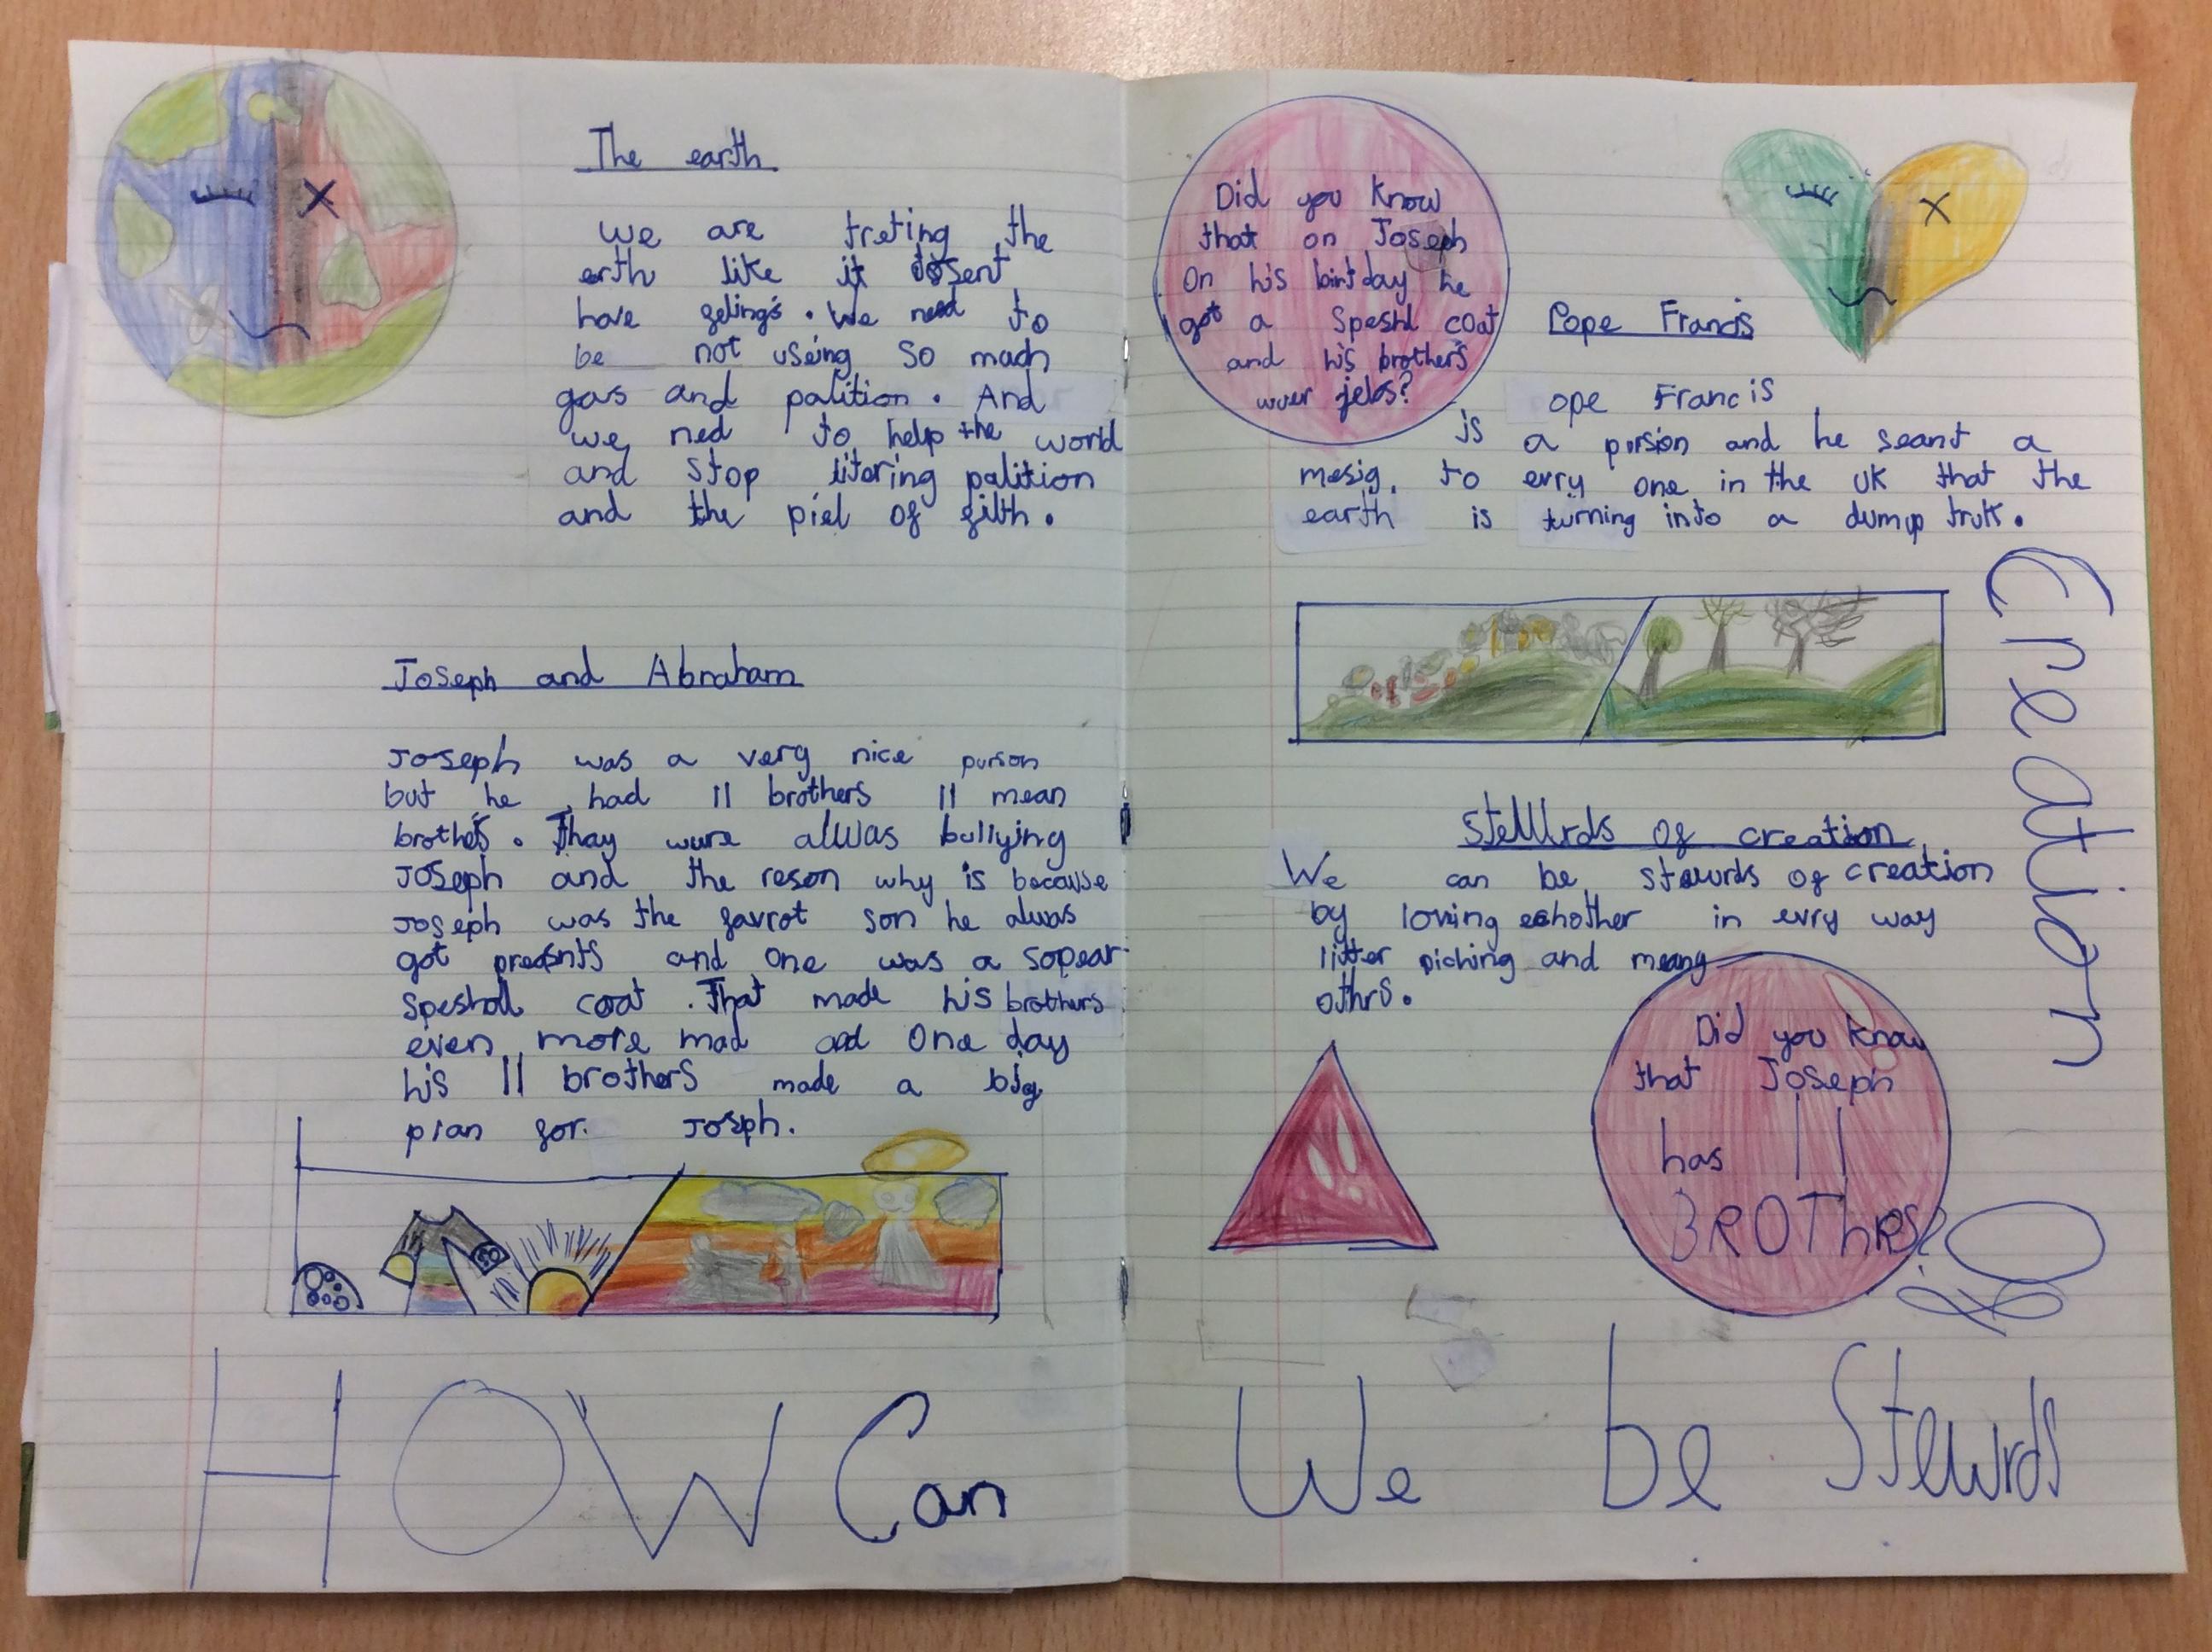 The earth
we are treting the
erth like it dosent
have felings. We need to
be not useing so mach
gas and palition. And
we ned to help the world
and stop litering palition
and the piel of filth.
Joseph and Abraham
Joseph was a very nice purson
but he had 11 brothers 11 mean
brothers. Thay wure alwas bullying
Joseph and the reson why is because
Joseph was the favrot son he alwas
got preasnts and one was a sopear
speshall coat. That made his brothers
even more mad and one day
his 11 brothers made a big
plan for Josph.
HOW Can
Did you know
that on Joseph
on his birtday he
got a speshl coat
and his brothers
wuer jelos?
Pope Francis
ope Francis
is a porsion and he seant a
mesig to evry one in the UK that the
earth is turning into a dump truk.
Stewrds of creation
We can be stewurds of creation
by loving echother in evry way
litter piching and meany
othrs.
Did you know
that Joseph
has 11
BROThRS?
We be Stewrds
Of
Creation